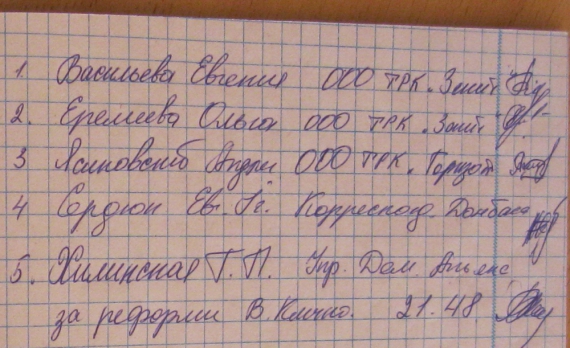 1. Васильева Евгения ООО ТРК "Зенит"
2. Еремеева Ольга ООО ТРК "Зенит"
3 Андрей ООО ТРК "Горизонт"
4 Сердюк Ев. Корреспонд. Донбасс
5. Хилинская Т.П. Дом. Альянс
за реформи В. Кличко. 21.48